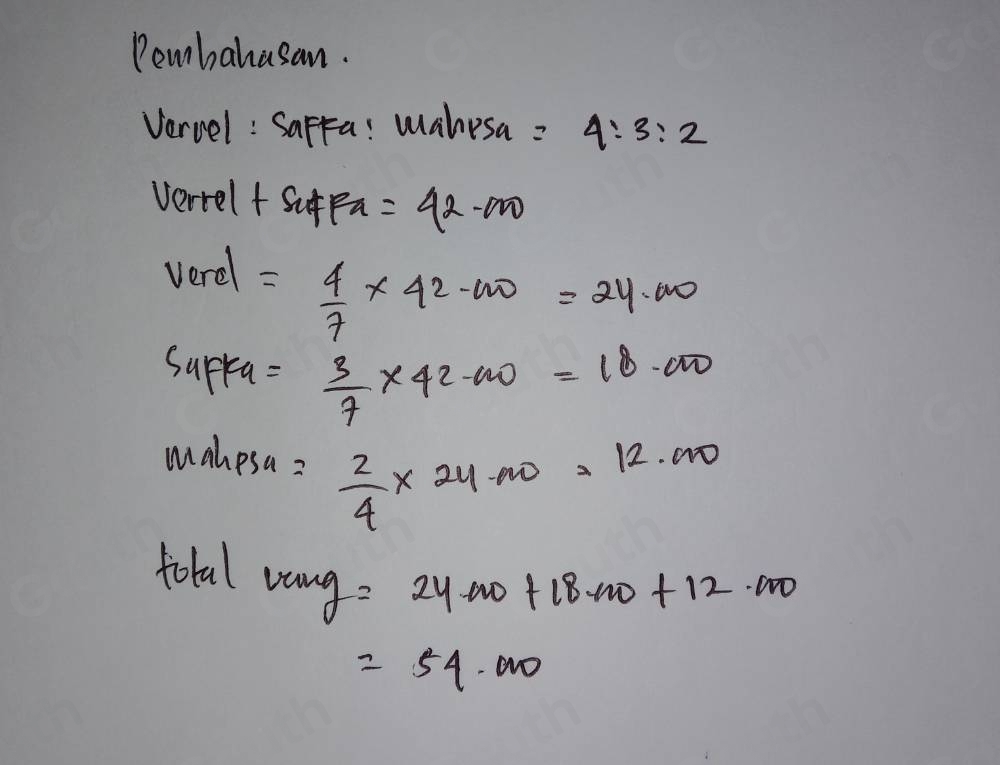 Pembahasan.
Verrel : Saffa : Mahesa = 4 : 3 : 2
Verrel + Saffa = 42.000
Verel = 4/7 × 42.000 = 24.000
Saffa = 3/7 × 42.000 = 18.000
Mahesa = 2/4 × 24.000 = 12.000
total uang = 24.000 + 18.000 + 12.000
= 54.000